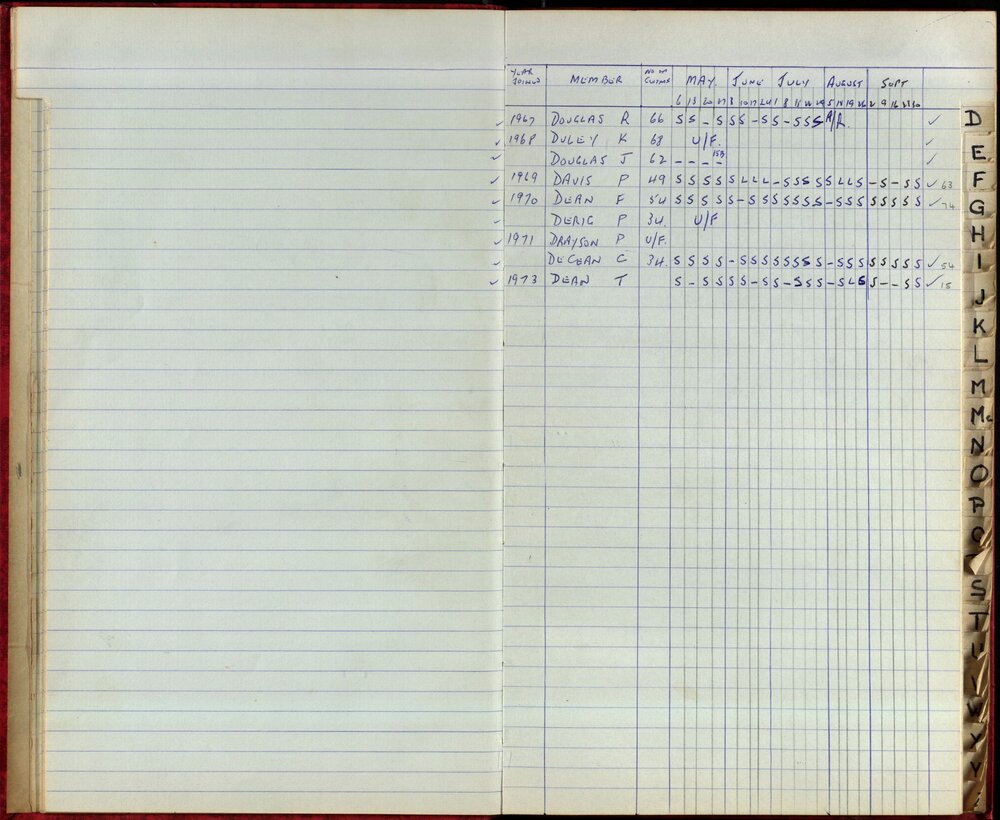 YEAR JOINED MEMBER NO OF SWIMS MAY JUNE JULY AUGUST SEPT
6 13 20 27 3 10 17 24 1 8 15 22 29 5 12 19 26 2 9 16 23 30
✓ 1967 DOUGLAS R 66 S S - S S S - S S - S S S A/L ✓
✓ 1968 DULEY K 68 U/F. ✓
✓ DOUGLAS J 62 - - - - ✓
✓ 1969 DAVIS P 49 S S S S S L L L - S S S S S L L S - S - S S ✓ 63
✓ 1970 DEAN F 54 S S S S S - S S S S S S S - S S S S S S S S ✓ 74
DERIG P 34. U/F
✓ 1971 DRAYSON P U/F.
✓ DECEAN C 34. S S S S - S S S S S S S S - S S S S S S S S ✓ 54
✓ 1973 DEAN T S - S S S S - S S - S S S - S L S S - - S S ✓ 15
D
E
F
G
H
I
J
K
L
M
Mc
N
O
P
Q
S
T
U
V
W
Y